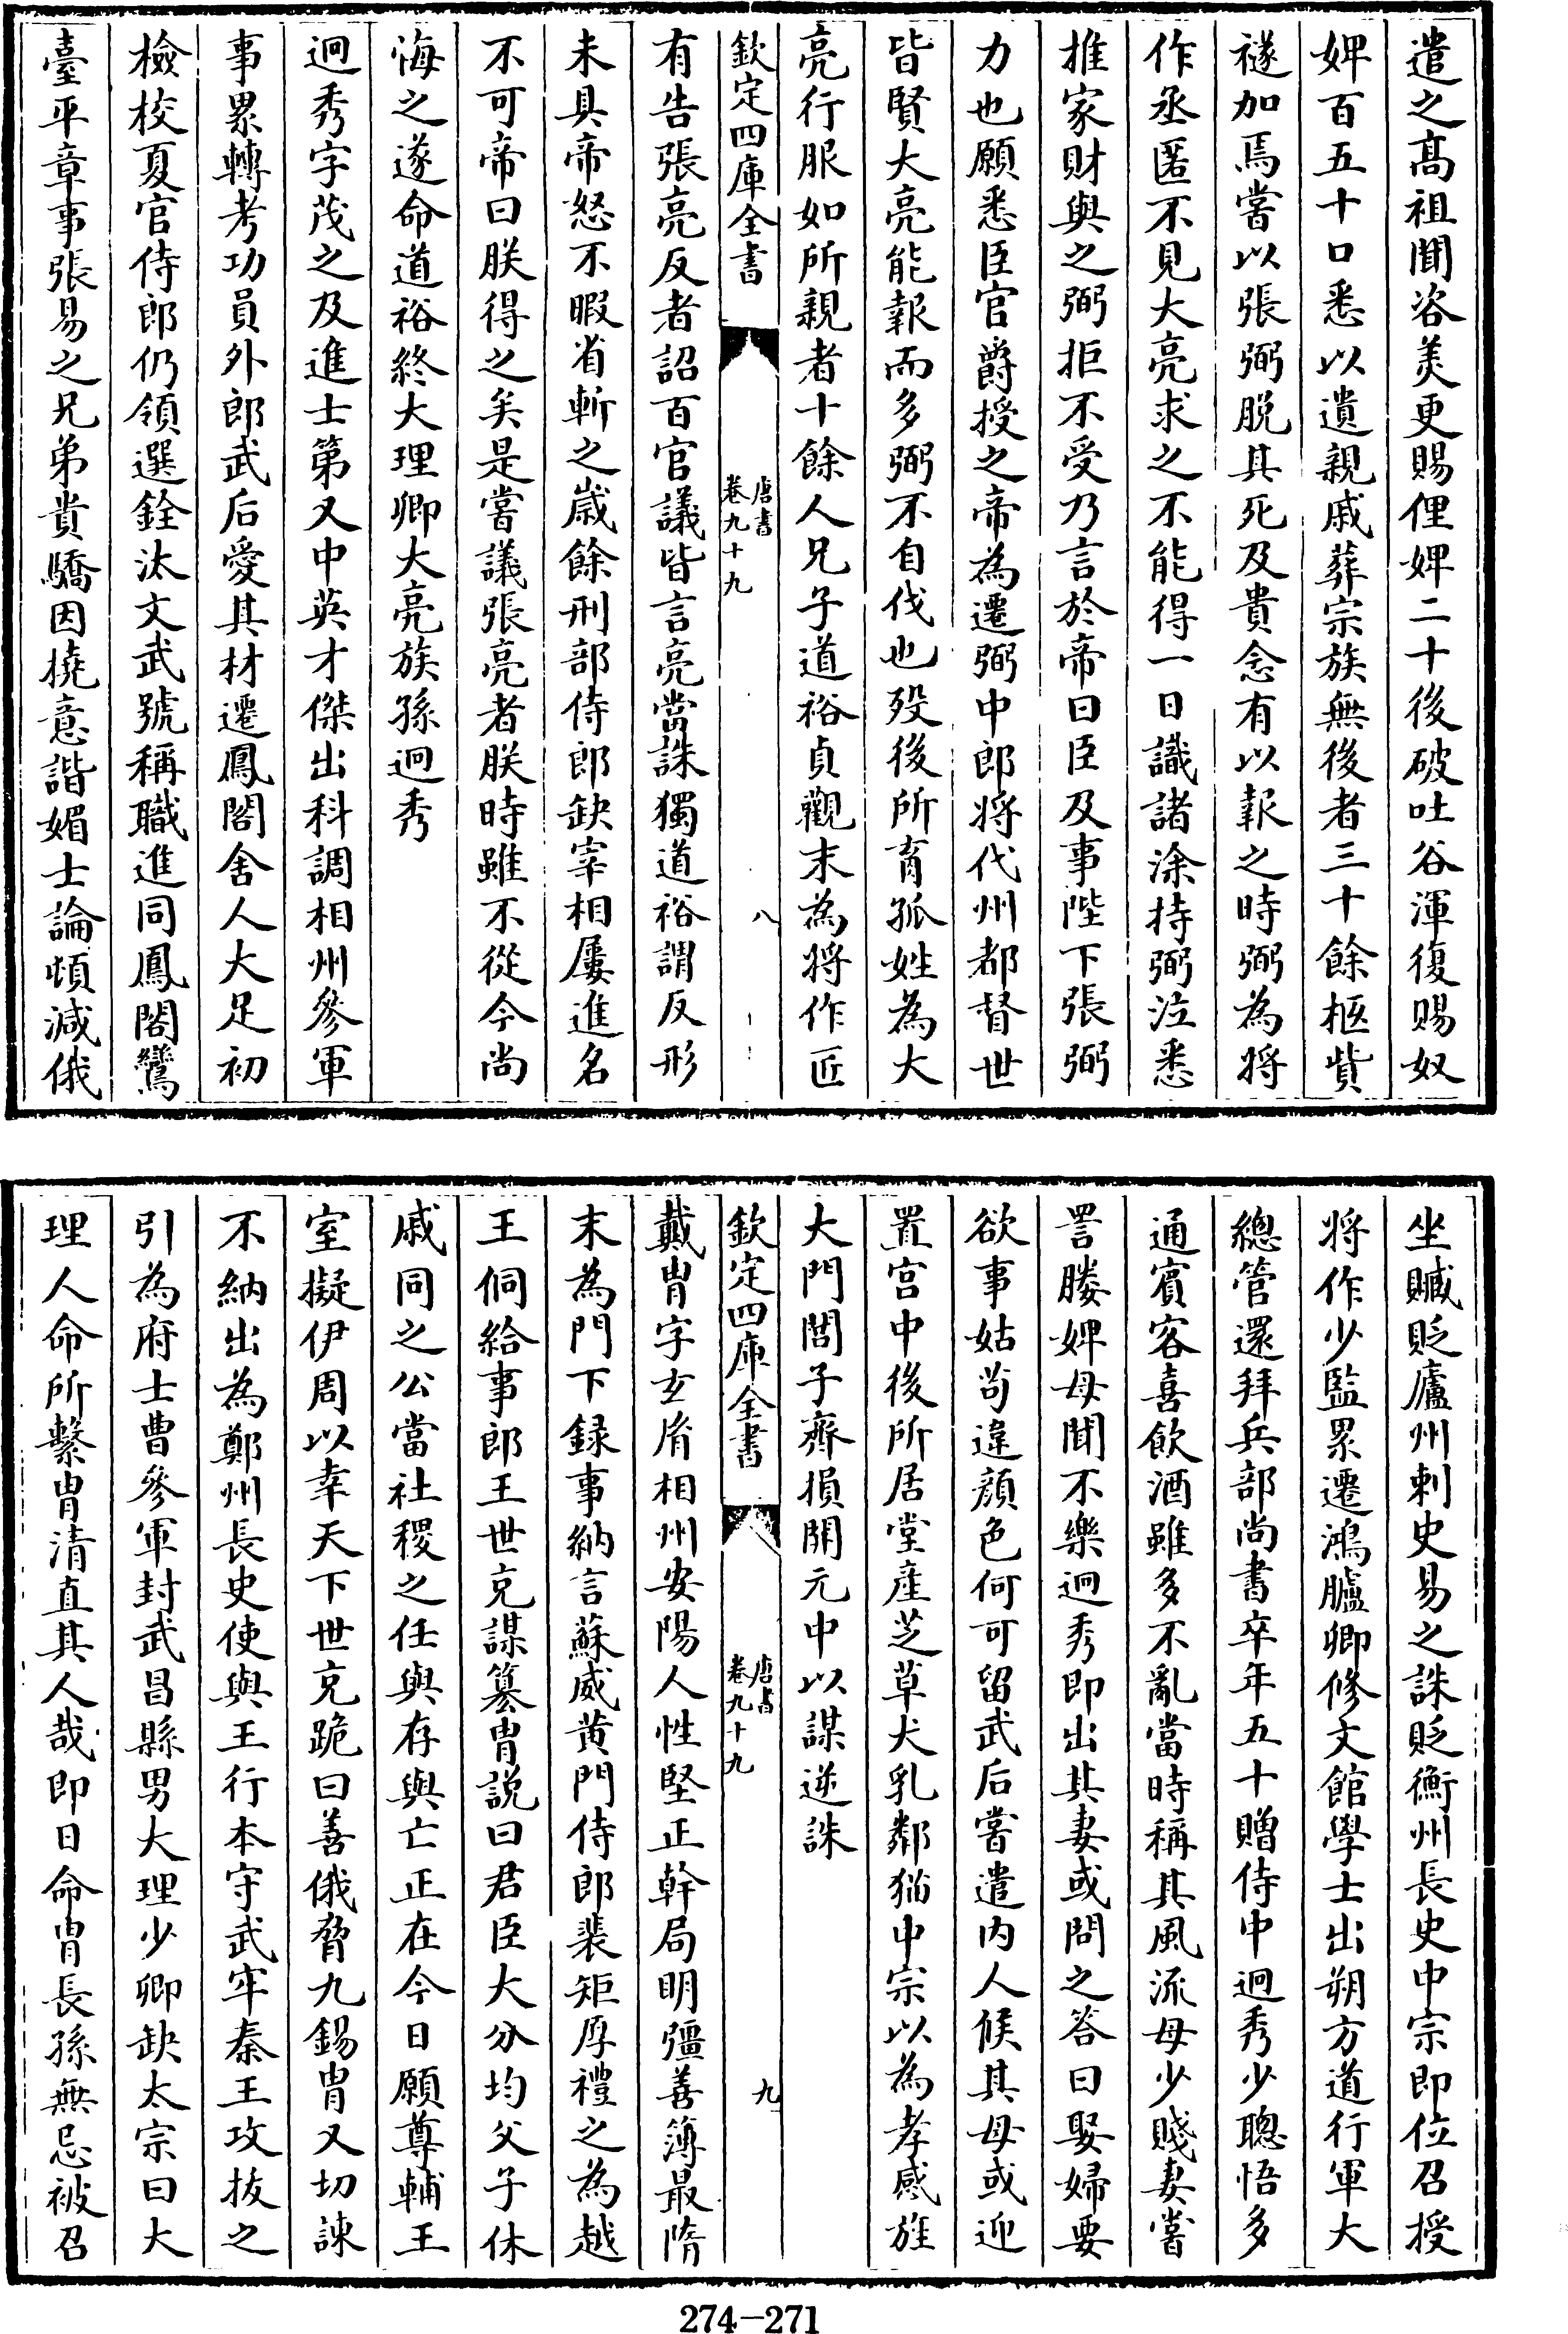 遣之高祖聞咨美更賜俚婢二十後破吐谷渾復賜奴
婢百五十口悉以遺親戚葬宗族無後者三十餘柩貲
禭加焉嘗以張弼脱其死及貴念有以報之時弼為將
作丞匿不見大亮求之不能得一日識諸涂持弼泣悉
推家財與之弼拒不受乃言於帝曰臣及事陛下張弼
力也願悉臣官爵授之帝為遷弼中郎將代州都督世
皆賢大亮能報而多弼不自伐也殁後所育孤姓為大
亮行服如所親者十餘人兄子道裕貞觀末為將作匠
欽定四庫全書
唐書
卷九十九
八
有告張亮反者詔百官議皆言亮當誅獨道裕謂反形
未具帝怒不暇省斬之歳餘刑部侍郎缺宰相屢進名
不可帝曰朕得之矣是嘗議張亮者朕時雖不從今尚
悔之遂命道裕終大理卿大亮族孫迥秀
迥秀字茂之及進士第又中英才傑出科調相州參軍
事累轉考功員外郎武后愛其材遷鳳閣舍人大足初
檢校夏官侍郎仍領選銓汰文武號稱職進同鳳閣鸞
臺平章事張易之兄弟貴驕因撓意諧媚士論頓減俄
坐贓貶廬州刺史易之誅貶衡州長史中宗即位召授
將作少監累遷鴻臚卿修文館學士出朔方道行軍大
總管還拜兵部尚書卒年五十贈侍中迥秀少聰悟多
通賓客喜飲酒雖多不亂當時稱其風流母少賤妻嘗
詈媵婢母聞不樂迥秀即出其妻或問之答曰娶婦要
欲事姑苟違顔色何可留武后嘗遣内人候其母或迎
置宫中後所居堂産芝草犬乳鄰猫中宗以為孝感旌
大門閭子齊損開元中以謀逆誅
欽定四庫全書
唐書
卷九十九
九
戴胄字玄胤相州安陽人性堅正幹局明彊善簿最隋
末為門下録事納言蘇威黄門侍郎裴矩厚禮之為越
王侗給事郎王世充謀簒胄説曰君臣大分均父子休
戚同之公當社稷之任與存與亡正在今日願尊輔王
室擬伊周以幸天下世充跪曰善俄脅九錫胄又切諫
不納出為鄭州長史使與王行本守武牢秦王攻拔之
引為府士曹參軍封武昌縣男大理少卿缺太宗曰大
理人命所繫胄清直其人哉即日命胄長孫無忌被召
274-271